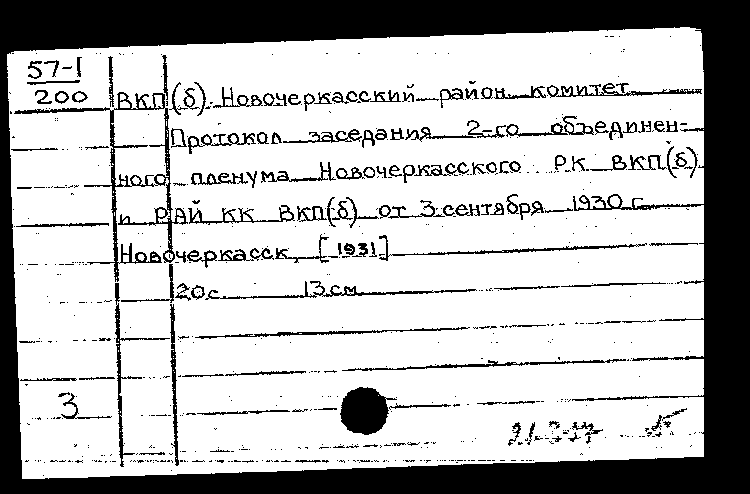 57-1
200
ВКП(б). Новочеркасский район. комитет
Протокол заседания 2-го объединен-
ного пленума Новочеркасского РК ВКП(б)
и РАЙ КК ВКП(б) от 3 сентября 1930 г.
Новочеркасск, [1931]
20 с. 13 см.
3